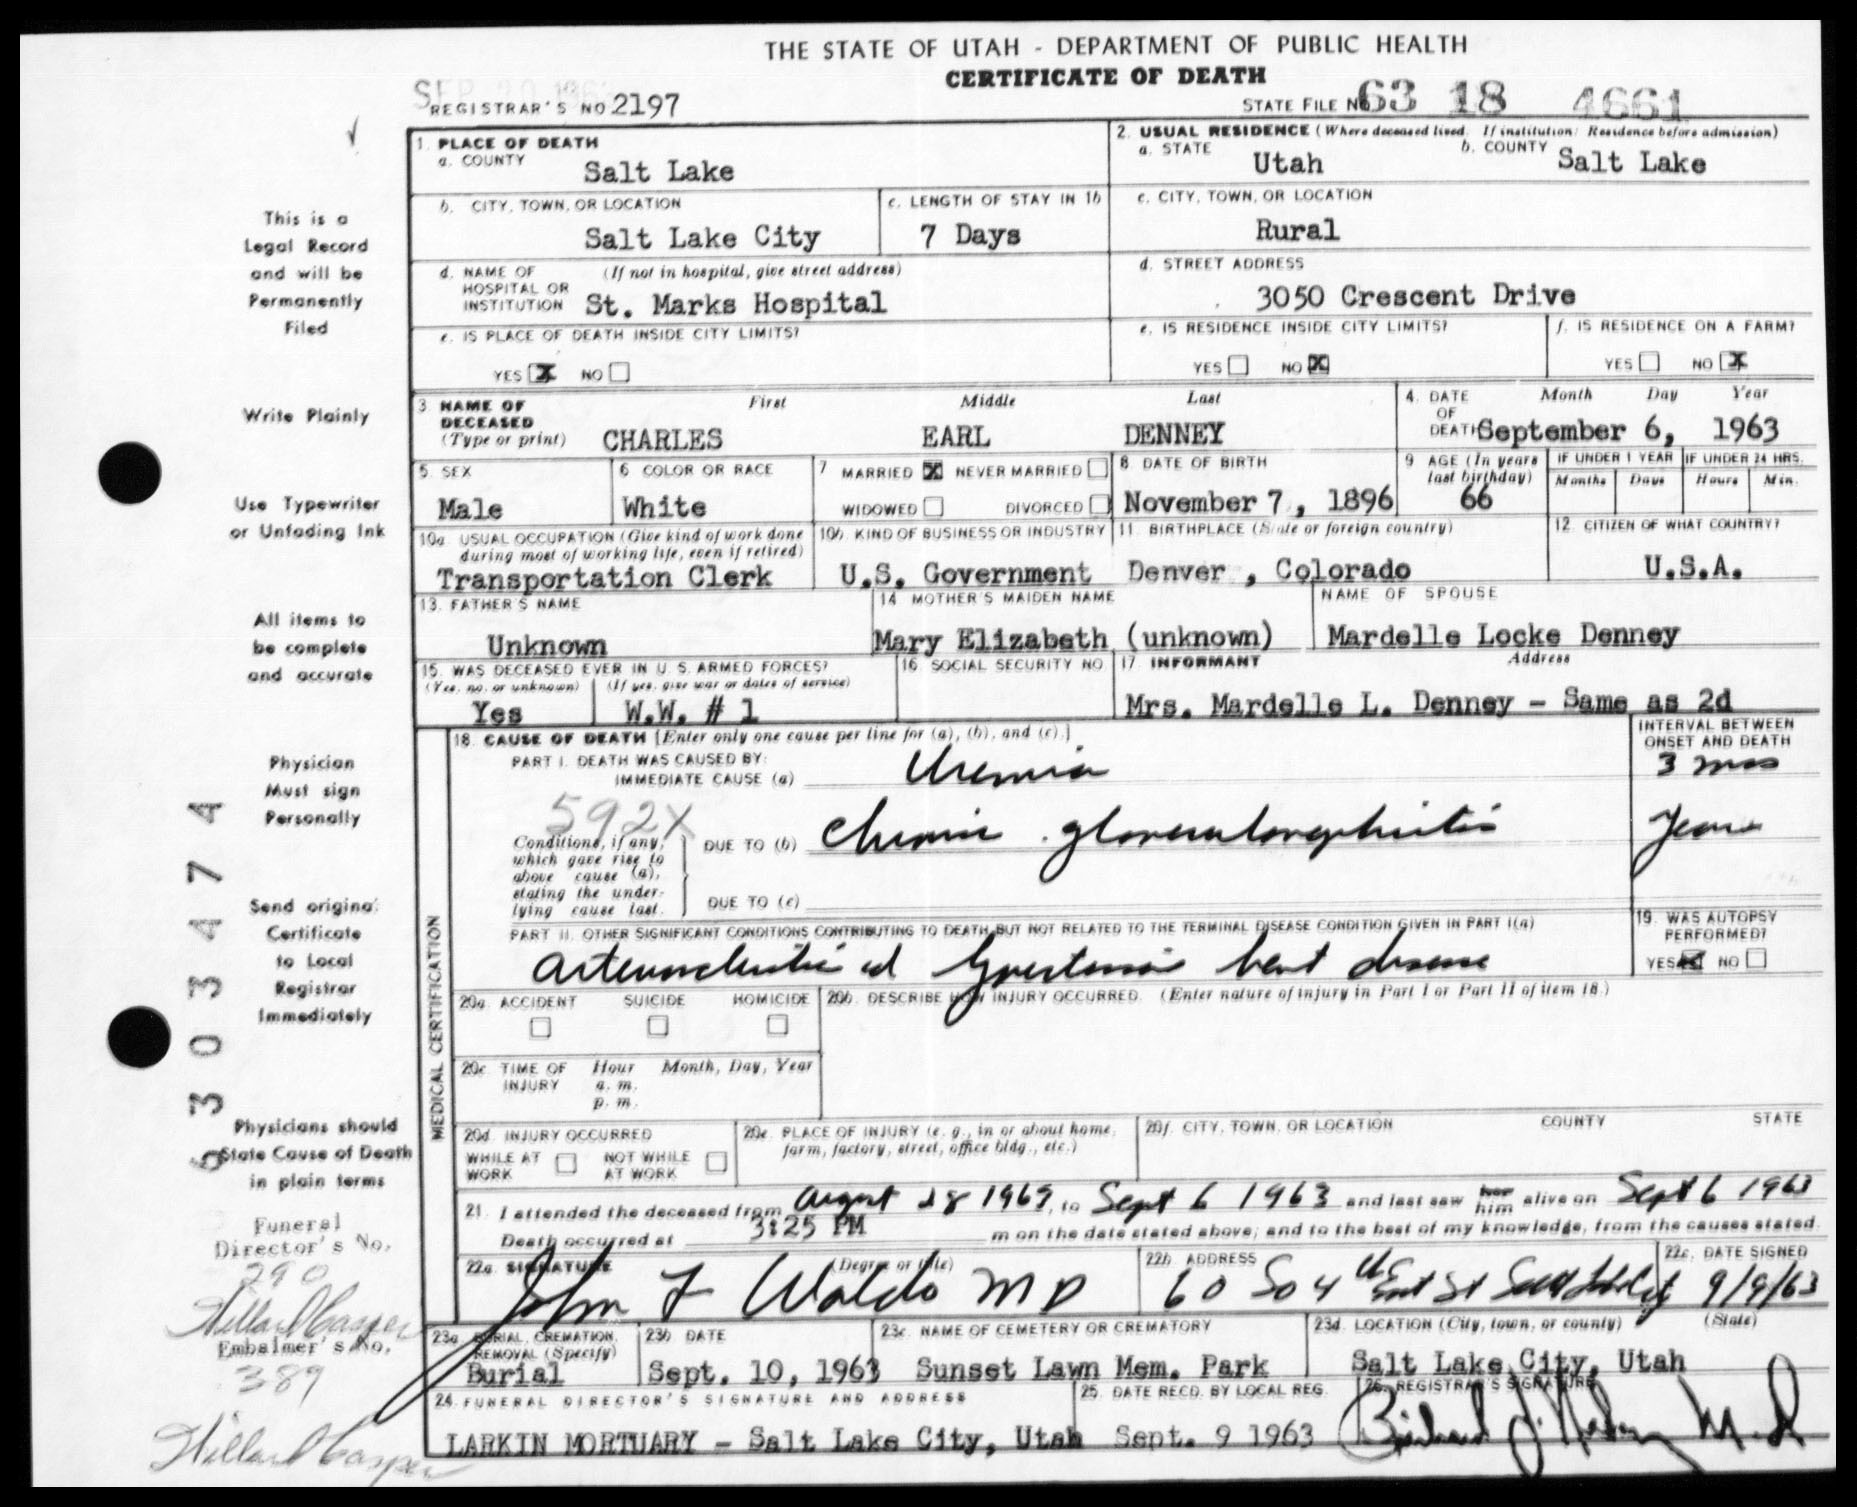 THE STATE OF UTAH - DEPARTMENT OF PUBLIC HEALTH
CERTIFICATE OF DEATH
SEP 20 1963
REGISTRAR'S NO 2197
STATE FILE NO 63 18 4661
1. PLACE OF DEATH
a. COUNTY Salt Lake
2. USUAL RESIDENCE (Where deceased lived. If institution: Residence before admission)
a. STATE Utah b. COUNTY Salt Lake
b. CITY, TOWN, OR LOCATION Salt Lake City
c. LENGTH OF STAY IN 1b 7 Days
c. CITY, TOWN, OR LOCATION Rural
d. NAME OF HOSPITAL OR INSTITUTION (If not in hospital, give street address) St. Marks Hospital
d. STREET ADDRESS 3050 Crescent Drive
e. IS PLACE OF DEATH INSIDE CITY LIMITS?
YES X NO
e. IS RESIDENCE INSIDE CITY LIMITS?
YES NO X
f. IS RESIDENCE ON A FARM?
YES NO X
3. NAME OF DECEASED (Type or print)
First Middle Last
CHARLES EARL DENNEY
4. DATE OF DEATH Month Day Year
September 6, 1963
5. SEX Male
6. COLOR OR RACE White
7. MARRIED X NEVER MARRIED
WIDOWED DIVORCED
8. DATE OF BIRTH November 7, 1896
9. AGE (In years last birthday) 66
IF UNDER 1 YEAR Months Days
IF UNDER 24 HRS. Hours Min.
10a. USUAL OCCUPATION (Give kind of work done during most of working life, even if retired)
Transportation Clerk
10b. KIND OF BUSINESS OR INDUSTRY
U.S. Government
11. BIRTHPLACE (State or foreign country)
Denver, Colorado
12. CITIZEN OF WHAT COUNTRY?
U.S.A.
13. FATHER'S NAME
Unknown
14. MOTHER'S MAIDEN NAME
Mary Elizabeth (unknown)
NAME OF SPOUSE
Mardelle Locke Denney
15. WAS DECEASED EVER IN U. S. ARMED FORCES?
(Yes, no, or unknown) (If yes, give war or dates of service)
Yes W.W. # 1
16. SOCIAL SECURITY NO
17. INFORMANT Address
Mrs. Mardelle L. Denney - Same as 2d
MEDICAL CERTIFICATION
18. CAUSE OF DEATH [Enter only one cause per line for (a), (b), and (c).]
INTERVAL BETWEEN ONSET AND DEATH
PART I. DEATH WAS CAUSED BY:
IMMEDIATE CAUSE (a) Uremia 3 mos
592X
Conditions, if any, which gave rise to above cause (a), stating the underlying cause last.
DUE TO (b) Chronic glomerulonephritis Years
DUE TO (c)
PART II. OTHER SIGNIFICANT CONDITIONS CONTRIBUTING TO DEATH BUT NOT RELATED TO THE TERMINAL DISEASE CONDITION GIVEN IN PART I(a)
heart disease
19. WAS AUTOPSY PERFORMED?
YES X NO
20a. ACCIDENT SUICIDE HOMICIDE
20b. DESCRIBE HOW INJURY OCCURRED. (Enter nature of injury in Part I or Part II of item 18.)
20c. TIME OF INJURY Hour Month, Day, Year
a. m.
p. m.
20d. INJURY OCCURRED
WHILE AT WORK NOT WHILE AT WORK
20e. PLACE OF INJURY (e. g., in or about home, farm, factory, street, office bldg., etc.)
20f. CITY, TOWN, OR LOCATION COUNTY STATE
21. I attended the deceased from August 28 1963, to Sept 6 1963 and last saw her him alive on Sept 6 1963
Death occurred at 3:25 PM m on the date stated above; and to the best of my knowledge, from the causes stated.
22a. SIGNATURE (Degree or title)
John F Waldo MD
22b. ADDRESS
60 So 4th East St Salt Lake City
22c. DATE SIGNED
9/9/63
23a. BURIAL, CREMATION, REMOVAL (Specify)
Burial
23b. DATE
Sept. 10, 1963
23c. NAME OF CEMETERY OR CREMATORY
Sunset Lawn Mem. Park
23d. LOCATION (City, town, or county) (State)
Salt Lake City, Utah
24. FUNERAL DIRECTOR'S SIGNATURE AND ADDRESS
LARKIN MORTUARY - Salt Lake City, Utah
25. DATE RECD. BY LOCAL REG.
Sept. 9 1963
26. REGISTRAR'S SIGNATURE
M.D.
This is a
Legal Record
and will be
Permanently
Filed
Write Plainly
Use Typewriter
or Unfading Ink
All items to
be complete
and accurate
Physician
Must sign
Personally
Send original
Certificate
to Local
Registrar
Immediately
Physicians should
State Cause of Death
in plain terms
Funeral
Director's No.
290
Willard Casper
Embalmer's No.
389
Willard Casper
6303474